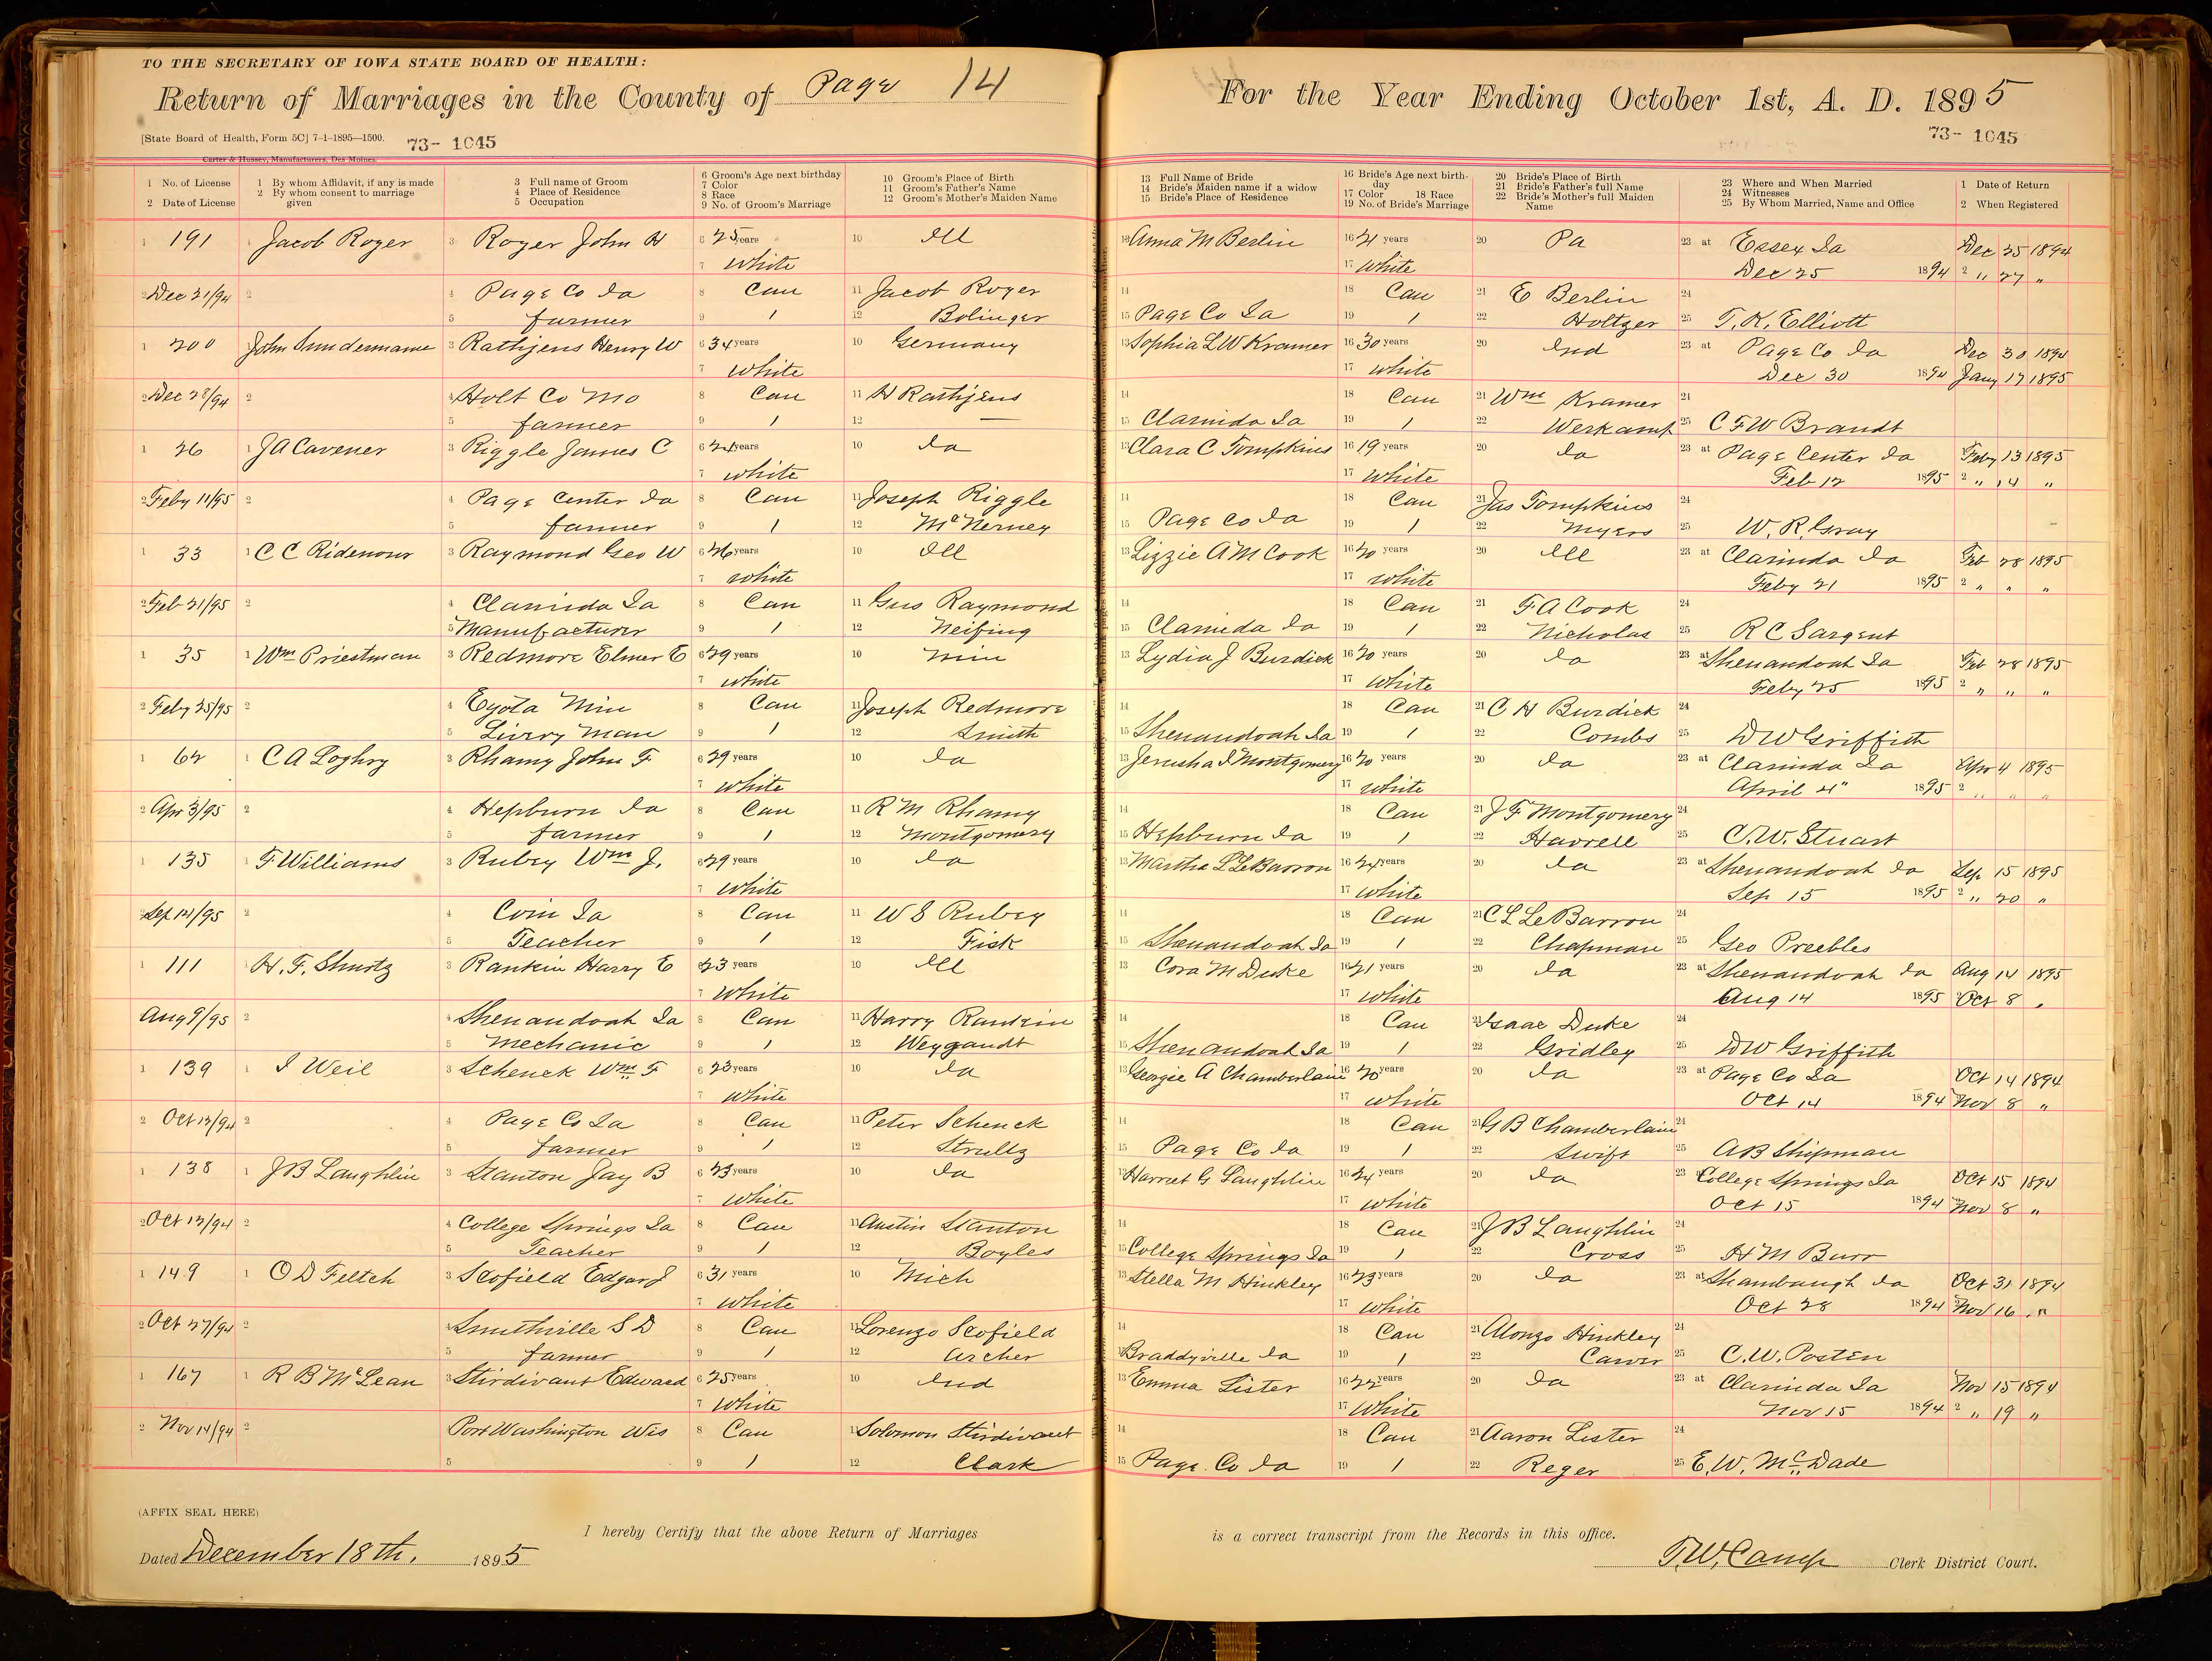 TO THE SECRETARY OF IOWA STATE BOARD OF HEALTH:
Return of Marriages in the County of Page 14
For the Year Ending October 1st, A. D. 1895
[State Board of Health, Form 5C] 7-1-1895—1500. 73- 1045
73- 1045
Carter & Hussey, Manufacturers, Des Moines.
1 No. of License
2 Date of License
1 By whom Affidavit, if any is made
2 By whom consent to marriage given
3 Full name of Groom
4 Place of Residence
5 Occupation
6 Groom's Age next birthday
7 Color
8 Race
9 No. of Groom's Marriage
10 Groom's Place of Birth
11 Groom's Father's Name
12 Groom's Mother's Maiden Name
13 Full Name of Bride
14 Bride's Maiden name if a widow
15 Bride's Place of Residence
16 Bride's Age next birth-day
17 Color 18 Race
19 No. of Bride's Marriage
20 Bride's Place of Birth
21 Bride's Father's full Name
22 Bride's Mother's full Maiden Name
23 Where and When Married
24 Witnesses
25 By Whom Married, Name and Office
1 Date of Return
2 When Registered
1 191 1 Jacob Royer 3 Royer John H 6 25 years 10 Ill 13 Anna M Berlin 16 21 years 20 Pa 23 at Essex Ia Dec 25 1894
7 White 17 White Dec 25 1894 2 " 27 "
2 Dec 21/94 2 4 Page Co Ia 8 Cau 11 Jacob Royer 14 18 Cau 21 E Berlin 24
5 farmer 9 1 12 Bolinger 15 Page Co Ia 19 1 22 Holtzer 25 T. K. Elliott
1 200 John Sundermann 3 Rathjens Henry W 6 34 years 10 Germany 13 Sophia L W Kramer 16 30 years 20 Ind 23 at Page Co Ia Dec 30 1894
7 White 17 White Dec 30 1894 Jany 17 1895
2 Dec 28/94 2 4 Holt Co Mo 8 Cau 11 H Rathjens 14 18 Cau 21 Wm Kramer 24
5 farmer 9 1 12 — 15 Clarinda Ia 19 1 22 Werkamp 25 C F W Brandt
1 26 1 J A Cavener 3 Riggle James C 6 21 years 10 Ia 13 Clara C Tompkins 16 19 years 20 Ia 23 at Page Center Ia Feby 13 1895
7 White 17 White Feb 12 1895 2 " 14 "
2 Feby 11/95 2 4 Page Center Ia 8 Cau 11 Joseph Riggle 14 18 Cau 21 Jas Tompkins 24
5 farmer 9 1 12 McNerney 15 Page Co Ia 19 1 22 Myers 25 W. R. Gray
1 33 1 C C Ridenour 3 Raymond Geo W 6 26 years 10 Ill 13 Lizzie A M Cook 16 20 years 20 Ill 23 at Clarinda Ia Feb 28 1895
7 White 17 White Feby 21 1895 2 " " "
2 Feb 21/95 2 4 Clarinda Ia 8 Cau 11 Gus Raymond 14 18 Cau 21 F A Cook 24
5 Manufacturer 9 1 12 Neifing 15 Clarinda Ia 19 1 22 Nicholas 25 R C Sargent
1 35 1 Wm Priestman 3 Redmore Elmer E 6 29 years 10 Min 13 Lydia J Burdick 16 20 years 20 Ia 23 at Shenandoah Ia Feb 28 1895
7 White 17 White Feby 25 1895 2 " " "
2 Feby 25/95 2 4 Eyota Min 8 Cau 11 Joseph Redmore 14 18 Cau 21 C H Burdick 24
5 Livery Man 9 1 12 Smith 15 Shenandoah Ia 19 1 22 Combs 25 D W Griffith
1 62 1 C A Loghry 3 Rhamy John F 6 29 years 10 Ia 13 Jerusha I Montgomery 16 20 years 20 Ia 23 at Clarinda Ia Apr 4 1895
7 White 17 White April 4" 1895 2 " " "
2 Apr 3/95 2 4 Hepburn Ia 8 Cau 11 R M Rhamy 14 18 Cau 21 J F Montgomery 24
5 farmer 9 1 12 Montgomery 15 Hepburn Ia 19 1 22 Harrell 25 C. W. Stuart
1 135 1 F Williams 3 Rubey Wm J. 6 29 years 10 Ia 13 Martha L LeBarron 16 24 years 20 Ia 23 at Shenandoah Ia Sep 15 1895
7 White 17 White Sep 15 1895 2 " 20 "
2 Sep 14/95 2 4 Coin Ia 8 Cau 11 W S Rubey 14 18 Cau 21 C L LeBarron 24
5 Teacher 9 1 12 Fisk 15 Shenandoah Ia 19 1 22 Chapman 25 Geo Preebles
1 111 1 H. F. Shurtz 3 Rankin Harry E 6 23 years 10 Ill 13 Cora M Duke 16 21 years 20 Ia 23 at Shenandoah Ia Aug 14 1895
7 White 17 White Aug 14 1895 Oct 8 "
Aug 9/95 2 4 Shenandoah Ia 8 Cau 11 Harry Rankin 14 18 Cau 21 Isaac Duke 24
5 Mechanic 9 1 12 Weygandt 15 Shenandoah Ia 19 1 22 Gridley 25 D W Griffith
1 139 1 I Weil 3 Schenck Wm F 6 23 years 10 Ia 13 Georgie A Chamberlain 16 20 years 20 Ia 23 at Page Co Ia Oct 14 1894
7 White 17 White Oct 14 1894 Nov 8 "
2 Oct 12/94 2 4 Page Co Ia 8 Cau 11 Peter Schenck 14 18 Cau 21 G B Chamberlain 24
5 farmer 9 1 12 Strultz 15 Page Co Ia 19 1 22 Swift 25 A B Shipman
1 138 1 J B Laughlin 3 Stanton Jay B 6 23 years 10 Ia 13 Harriet G Laughlin 16 24 years 20 Ia 23 College Springs Ia Oct 15 1894
7 White 17 White Oct 15 1894 Nov 8 "
2 Oct 12/94 2 4 College Springs Ia 8 Cau 11 Austin Stanton 14 18 Cau 21 J B Laughlin 24
5 Teacher 9 1 12 Boyles 15 College Springs Ia 19 1 22 Cross 25 H M Burr
1 149 1 O D Feltch 3 Scofield Edgar J 6 31 years 10 Mich 13 Stella M Hinkley 16 23 years 20 Ia 23 at Shambaugh Ia Oct 31 1894
7 White 17 White Oct 28 1894 Nov 16 "
2 Oct 27/94 2 4 Smithville S D 8 Cau 11 Lorenzo Scofield 14 18 Cau 21 Alonzo Hinkley 24
5 farmer 9 1 12 Archer 15 Braddyville Ia 19 1 22 Carver 25 C. W. Posten
1 167 1 R B McLean 3 Stirdivant Edward 6 25 years 10 Ind 13 Emma Lister 16 22 years 20 Ia 23 at Clarinda Ia Nov 15 1894
7 White 17 White Nov 15 1894 2 " 19 "
2 Nov 14/94 2 Port Washington Wis 8 Cau 11 Solomon Stirdivant 14 18 Cau 21 Aaron Lister 24
5 9 1 12 Clark 15 Page Co Ia 19 1 22 Reger 25 E. W. McDade
(AFFIX SEAL HERE)
I hereby Certify that the above Return of Marriages is a correct transcript from the Records in this office.
Dated December 18th, 1895
T. W. Camp Clerk District Court.